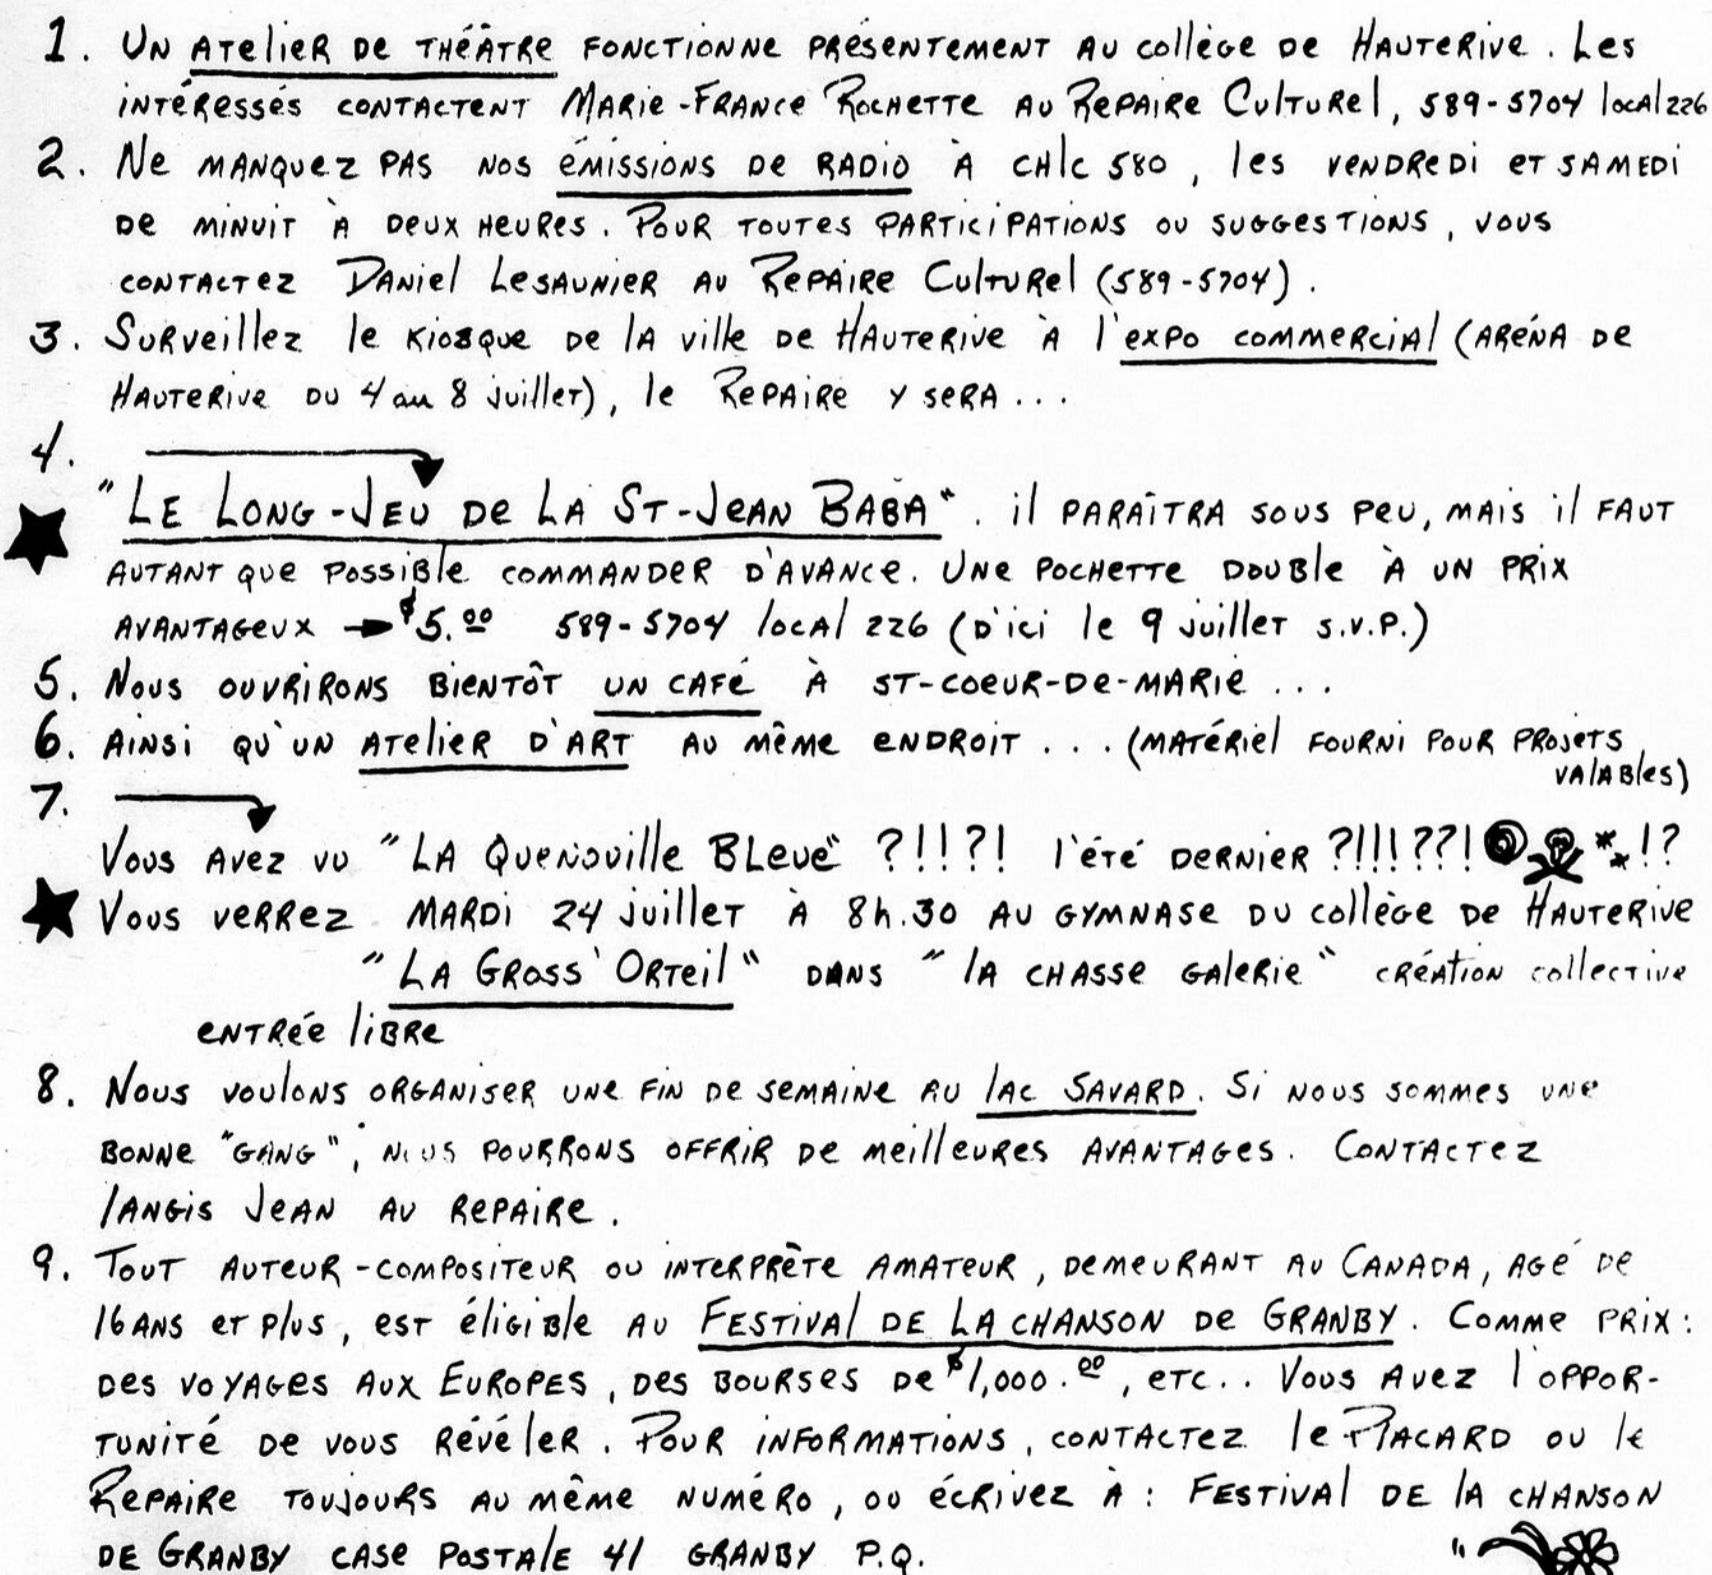 1. Un atelier de théâtre fonctionne présentement au collège de Hauterive. Les
intéressés contactent Marie-France Rochette au Repaire Culturel, 589-5704 local 226
2. Ne manquez pas nos émissions de radio à CHLC 580, les vendredi et samedi
de minuit à deux heures. Pour toutes participations ou suggestions, vous
contactez Daniel Lesaunier au Repaire Culturel (589-5704).
3. Surveillez le kiosque de la ville de Hauterive à l'expo commercial (aréna de
Hauterive du 4 au 8 juillet), le Repaire y sera...
4.
"Le Long-Jeu de La St-Jean Baba". il paraîtra sous peu, mais il faut
autant que possible commander d'avance. Une pochette double à un prix
avantageux → $5.00 589-5704 local 226 (d'ici le 9 juillet s.v.p.)
5. Nous ouvrirons bientôt un café à St-Coeur-de-Marie...
6. Ainsi qu'un atelier d'art au même endroit... (matériel fourni pour projets
valables)
7.
Vous avez vu "La Quenouille Bleue" ?!!?! l'été dernier ?!!!??! **!?
Vous verrez mardi 24 juillet à 8h.30 au gymnase du collège de Hauterive
"La Gross'Orteil" dans "la chasse galerie" création collective
entrée libre
8. Nous voulons organiser une fin de semaine au lac Savard. Si nous sommes une
bonne "gang", nous pourrons offrir de meilleures avantages. Contactez
Langis Jean au repaire.
9. Tout auteur-compositeur ou interprète amateur, demeurant au Canada, agé de
16 ans et plus, est éligible au Festival de La chanson de Granby. Comme prix:
des voyages aux Europes, des bourses de $1,000.00, etc.. Vous avez l'oppor-
tunité de vous révéler. Pour informations, contactez le Placard ou le
Repaire toujours au même numéro, ou écrivez à: Festival de la chanson
de Granby case postale 41 Granby P.Q.